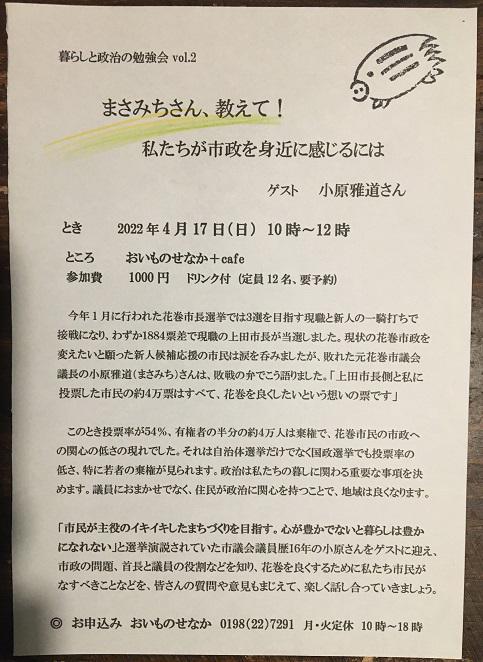 暮らしと政治の勉強会 vol.2
まさみちさん、教えて！
私たちが市政を身近に感じるには
ゲスト　小原雅道さん
とき　2022年4月17日(日)　10時～12時
ところ　おいものせなか＋cafe
参加費　1000円　ドリンク付（定員12名、要予約）
今年1月に行われた花巻市長選挙では3選を目指す現職と新人の一騎打ちで
接戦になり、わずか1884票差で現職の上田市長が当選しました。現状の花巻市政を
変えたいと願った新人候補応援の市民は涙を呑みましたが、敗れた元花巻市議会
議長の小原雅道（まさみち）さんは、敗戦の弁でこう語りました。「上田市長側と私に
投票した市民の約4万票はすべて、花巻を良くしたいという想いの票です」
このとき投票率が54%、有権者の半分の約4万人は棄権で、花巻市民の市政へ
の関心の低さの現れでした。それは自治体選挙だけでなく国政選挙でも投票率の
低さ、特に若者の棄権が見られます。政治は私たちの暮しに関わる重要な事項を決
めます。議員におまかせでなく、住民が政治に関心を持つことで、地域は良くなります。
「市民が主役のイキイキしたまちづくりを目指す。心が豊かでないと暮らしは豊か
になれない」と選挙演説されていた市議会議員歴16年の小原さんをゲストに迎え、
市政の問題、首長と議員の役割などを知り、花巻を良くするために私たち市民が
なすべきことなどを、皆さんの質問や意見もまじえて、楽しく話し合っていきましょう。
◎　お申込み　おいものせなか　0198(22)7291　月・火定休　10時～18時